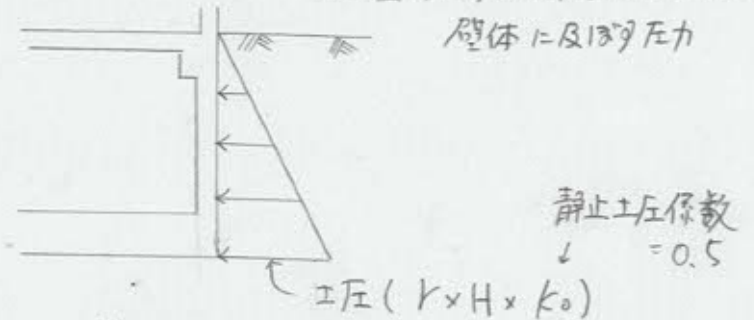 壁体に及ぼす圧力
静止土圧係数
↓ =0.5
土圧(γ×H×K₀)